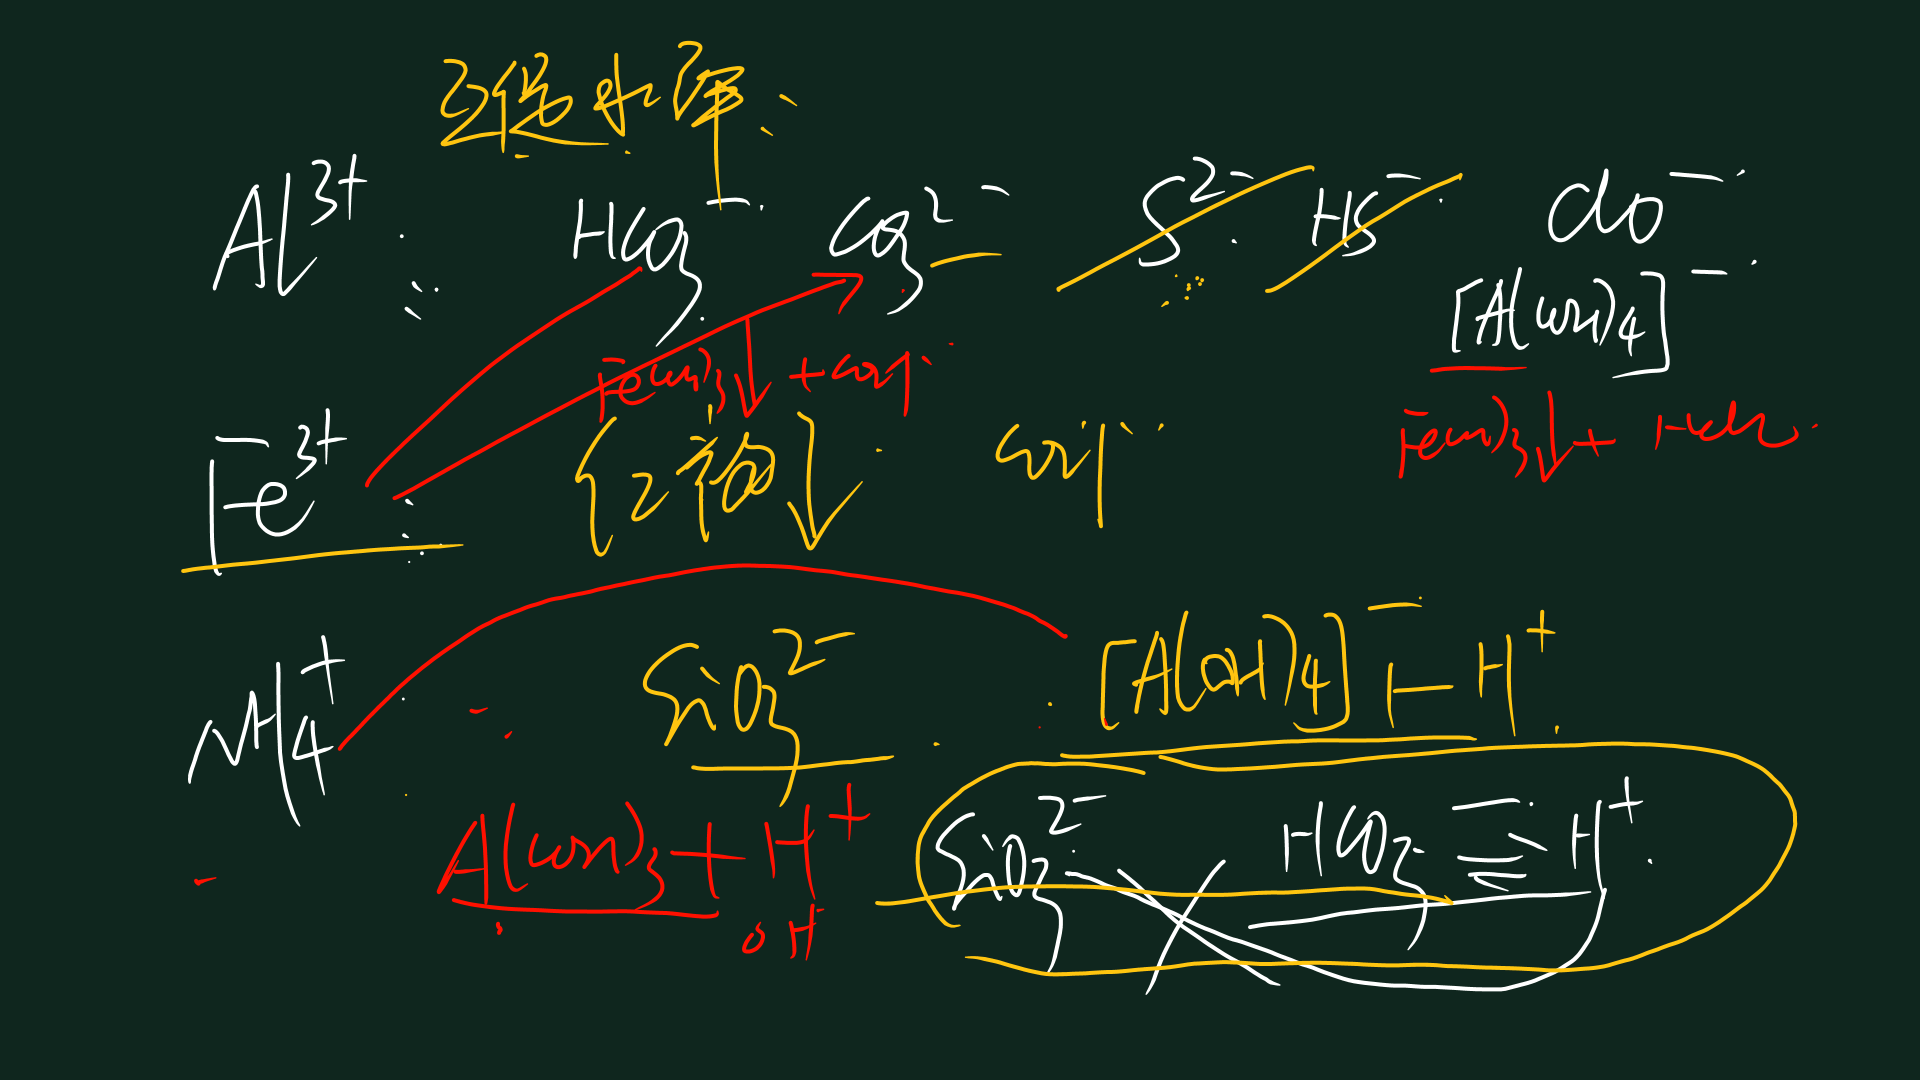 互促水解
Al³⁺ HCO₃⁻ CO₃²⁻ S²⁻ HS⁻ ClO⁻
[Al(OH)₄]⁻
Fe(OH)₃↓ + CO₂↑
Fe³⁺ {2 ↓ CO₂↑ Fe(OH)₃↓ + HClO
NH₄⁺ SiO₃²⁻ [Al(OH)₄]⁻ — H⁺
Al(OH)₃ + H⁺ SiO₃²⁻ HCO₃⁻ H⁺
OH⁻